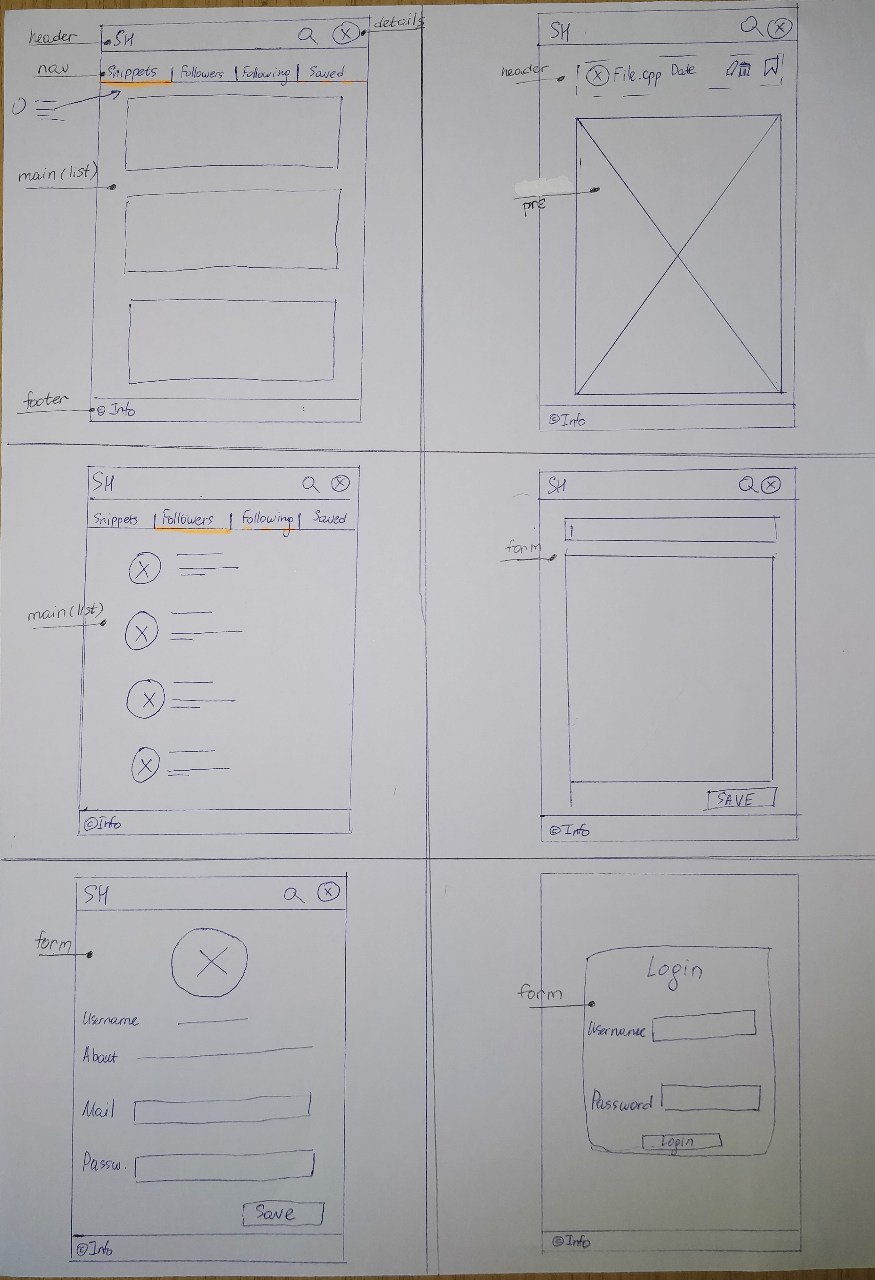 header
SH
details
nav
Snippets | Followers | Following | Saved
main (list)
footer
© Info
SH
header
File.cpp Date
pre
© Info
SH
Snippets | Followers | Following | Saved
main (list)
© Info
SH
form
SAVE
© Info
SH
form
Username
About
Mail
Passw.
Save
© Info
Login
form
Username
Password
Login
© Info